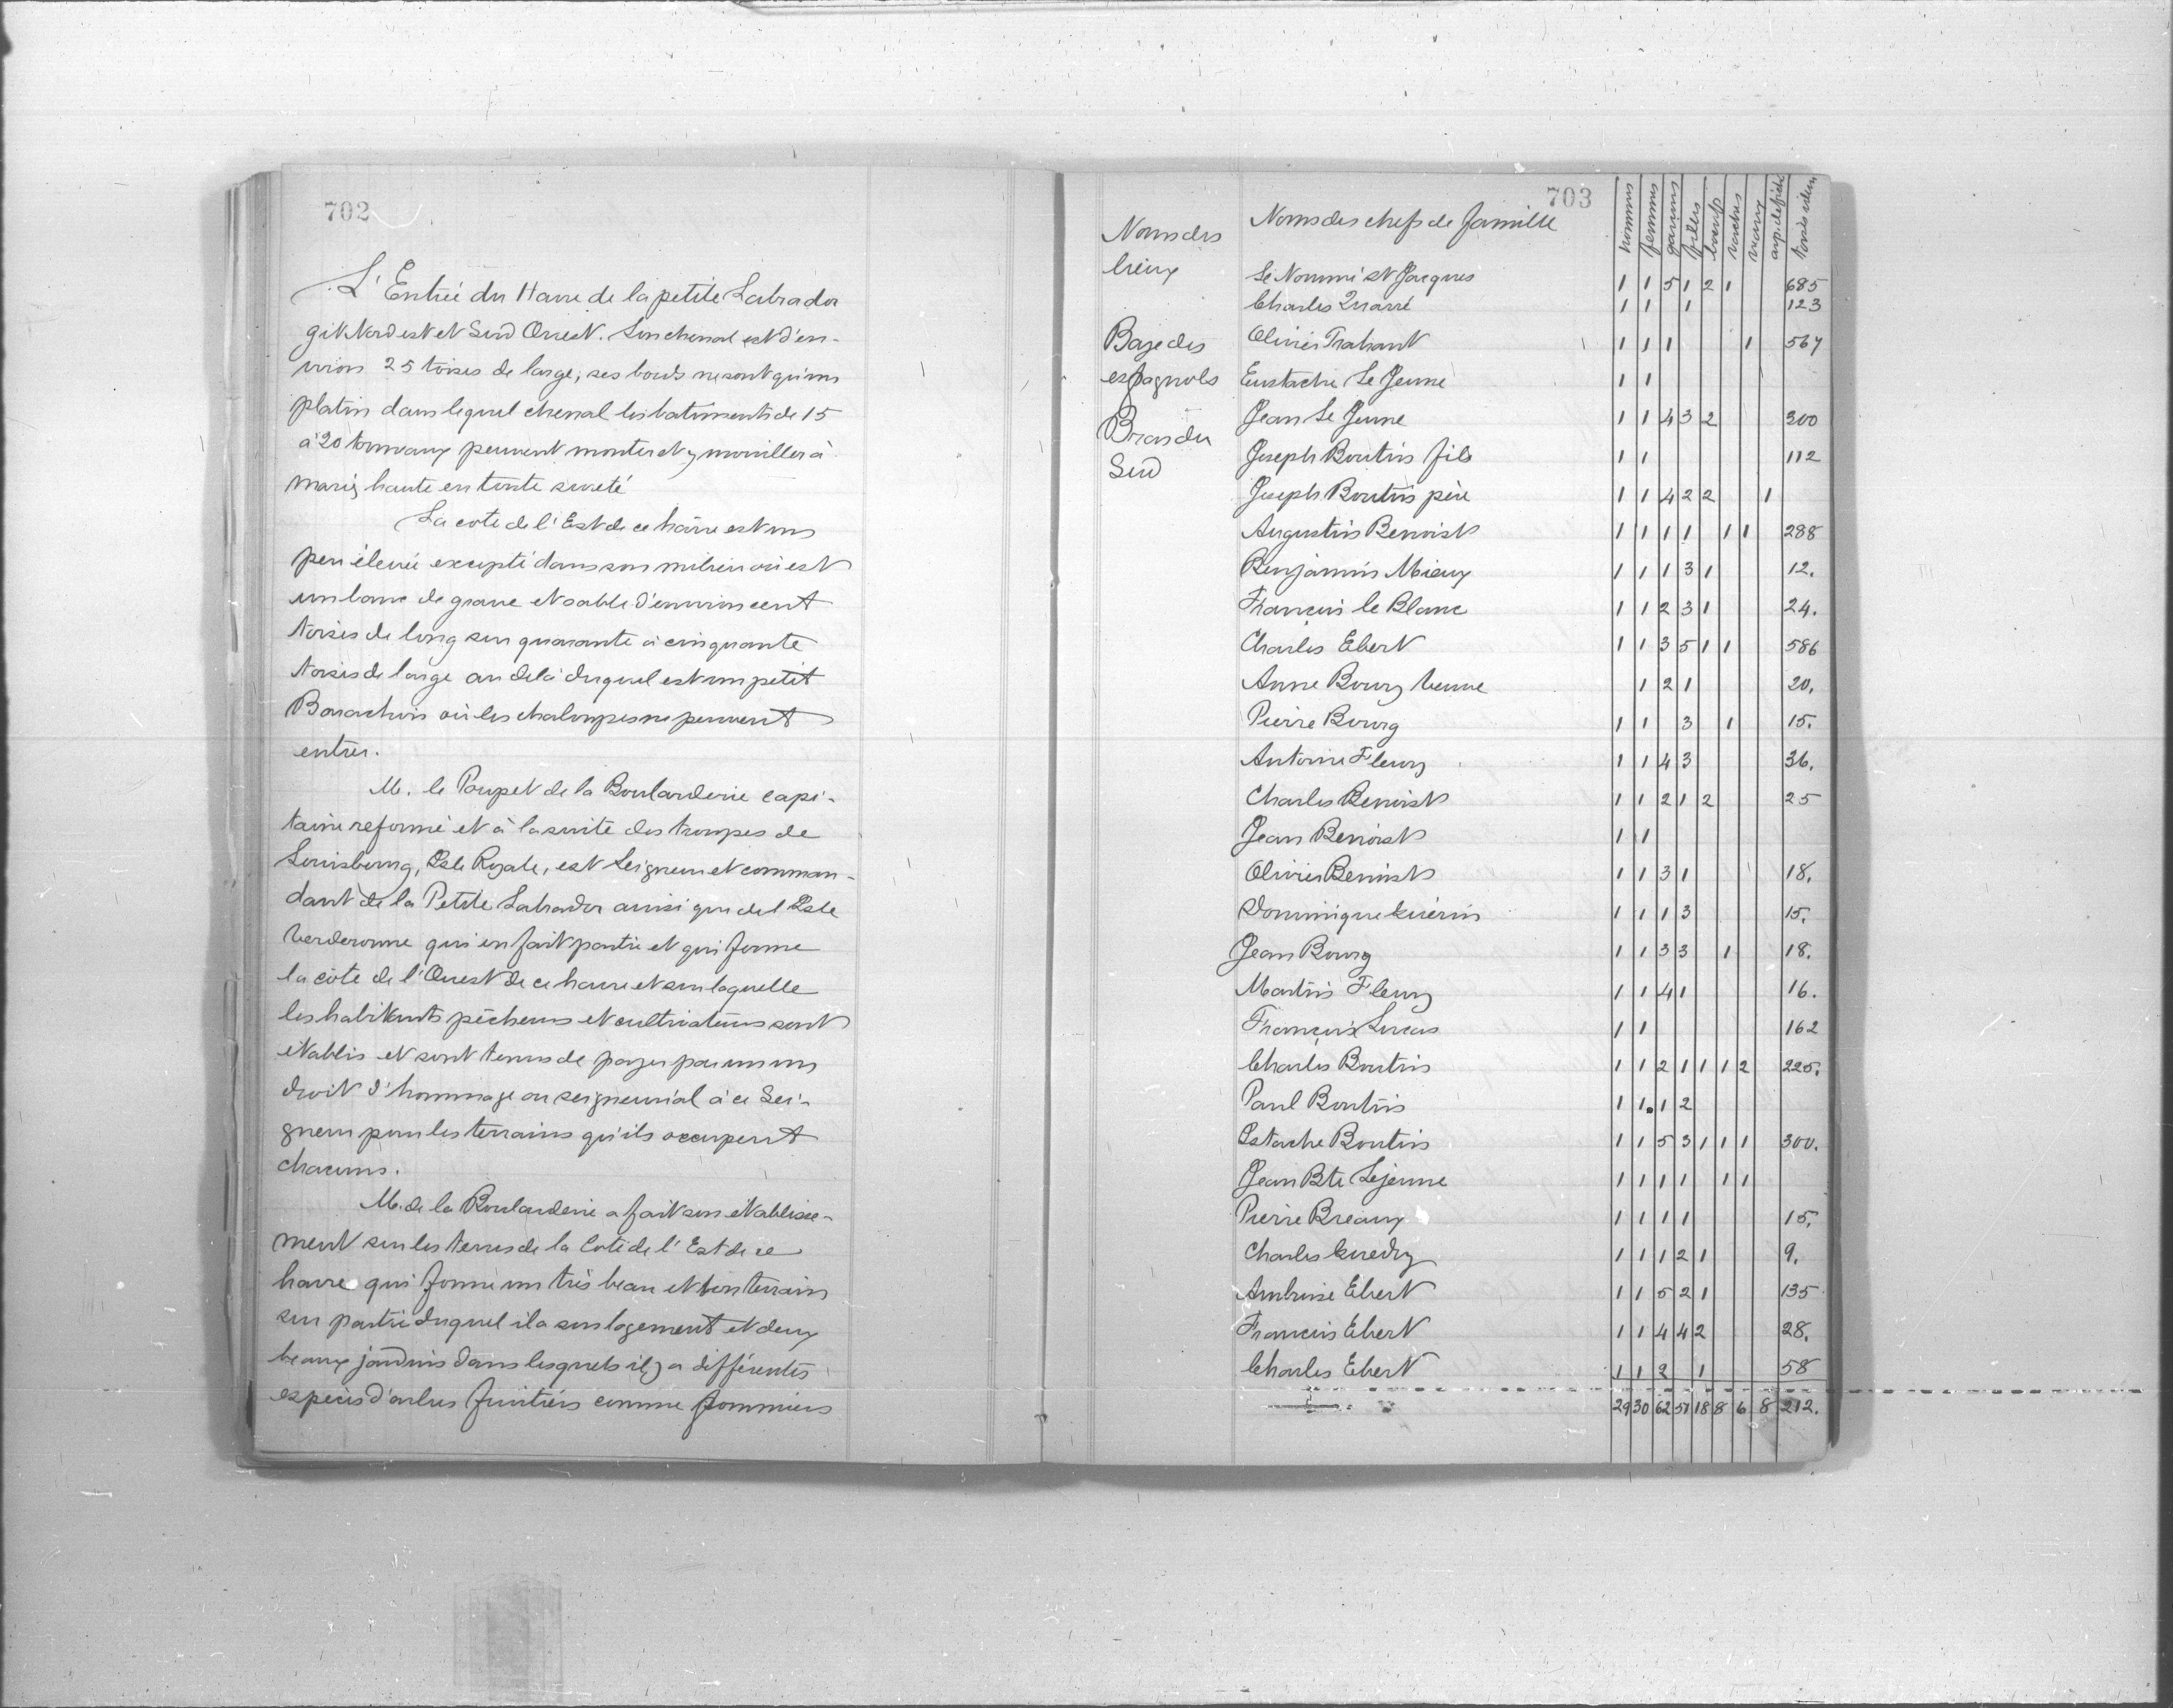 702
L'Entrée du Havre de la petite Labrador
git Nord est et Sud Ouest. Son chenal est d'en-
viron 25 toises de large, ses bords ne sont qu'un
platin dans lequel chenal les batiments de 15
à 20 tonneaux peuvent monter et y mouiller à
marée haute en toute sureté
La cote de l'Est de ce hâvre est un
peu élevée excepté dans son milieu où est
un banc de grave et sable d'environ cent
toises de long sur quarante à cinquante
toises de large au delà duquel est un petit
Barachois où les chaloupes ne peuvent
entrer.
M. le Poupet de la Boularderie capi-
taine reformé et à la suite des troupes de
Louisbourg, Isle Royale, est Seigneur et comman-
dant de la Petite Labrador ainsi que de l'Isle
Verderonne qui en fait partie et qui forme
la côte de l'Ouest de ce havre et sur laquelle
les habitants pêcheurs et cultivateurs sont
établis et sont tenus de payer par un un
droit d'hommage ou seigneurial à ce Sei-
gneur pour les terrains qu'ils occupent
chacuns.
M. de la Boularderie a fait son établisse-
ment sur les terres de la Cote de l'Est de ce
havre qui forme un très beau et bon terrain
sur partie duquel il a son logement et deux
beaux jardins dans lesquels il y a différentes
espèces d'arbres fruitiers comme pommiers
703
Noms des lieux Noms des chefs de famille hommes femmes garçons filles boeufs vaches veaux arp. de friche toises idem
Le Nommé St Jacques 1 1 5 1 2 1 685
Charles Quarré 1 1 1 123
Baye des Olivier Trahant 1 1 1 1 567
espagnols Eustache Le Jeune 1 1
Bras du Jean Le Jeune 1 1 4 3 2 300
Sud Joseph Boutin fils 1 1 112
Joseph Boutin père 1 1 4 2 2 1
Augustin Benoist 1 1 1 1 1 1 288
Benjamin Mieux 1 1 1 3 1 12.
François le Blanc 1 1 2 3 1 24.
Charles Ebert 1 1 3 5 1 1 586
Anne Bourg veuve 1 2 1 20.
Pierre Bourg 1 1 3 1 15.
Antoine Fleury 1 1 4 3 36.
Charles Benoist 1 1 2 1 2 25
Jean Benoist 1 1
Olivier Benoist 1 1 3 1 18.
Dominique Guérin 1 1 1 3 15.
Jean Bourg 1 1 3 3 1 18.
Martin Fleury 1 1 4 1 16.
François Lucas 1 1 162
Charles Boutin 1 1 2 1 1 1 2 225.
Paul Boutin 1 1 1 2
Estache Boutin 1 1 5 3 1 1 1 300.
Jean Bte Lejeune 1 1 1 1 1 1
Pierre Breaux 1 1 1 1 15.
Charles Guedry 1 1 1 2 1 9.
Ambroise Ebert 1 1 5 2 1 135
François Ebert 1 1 4 4 2 28.
Charles Ebert 1 1 2 1 58
29 30 62 51 18 8 6 8 212.